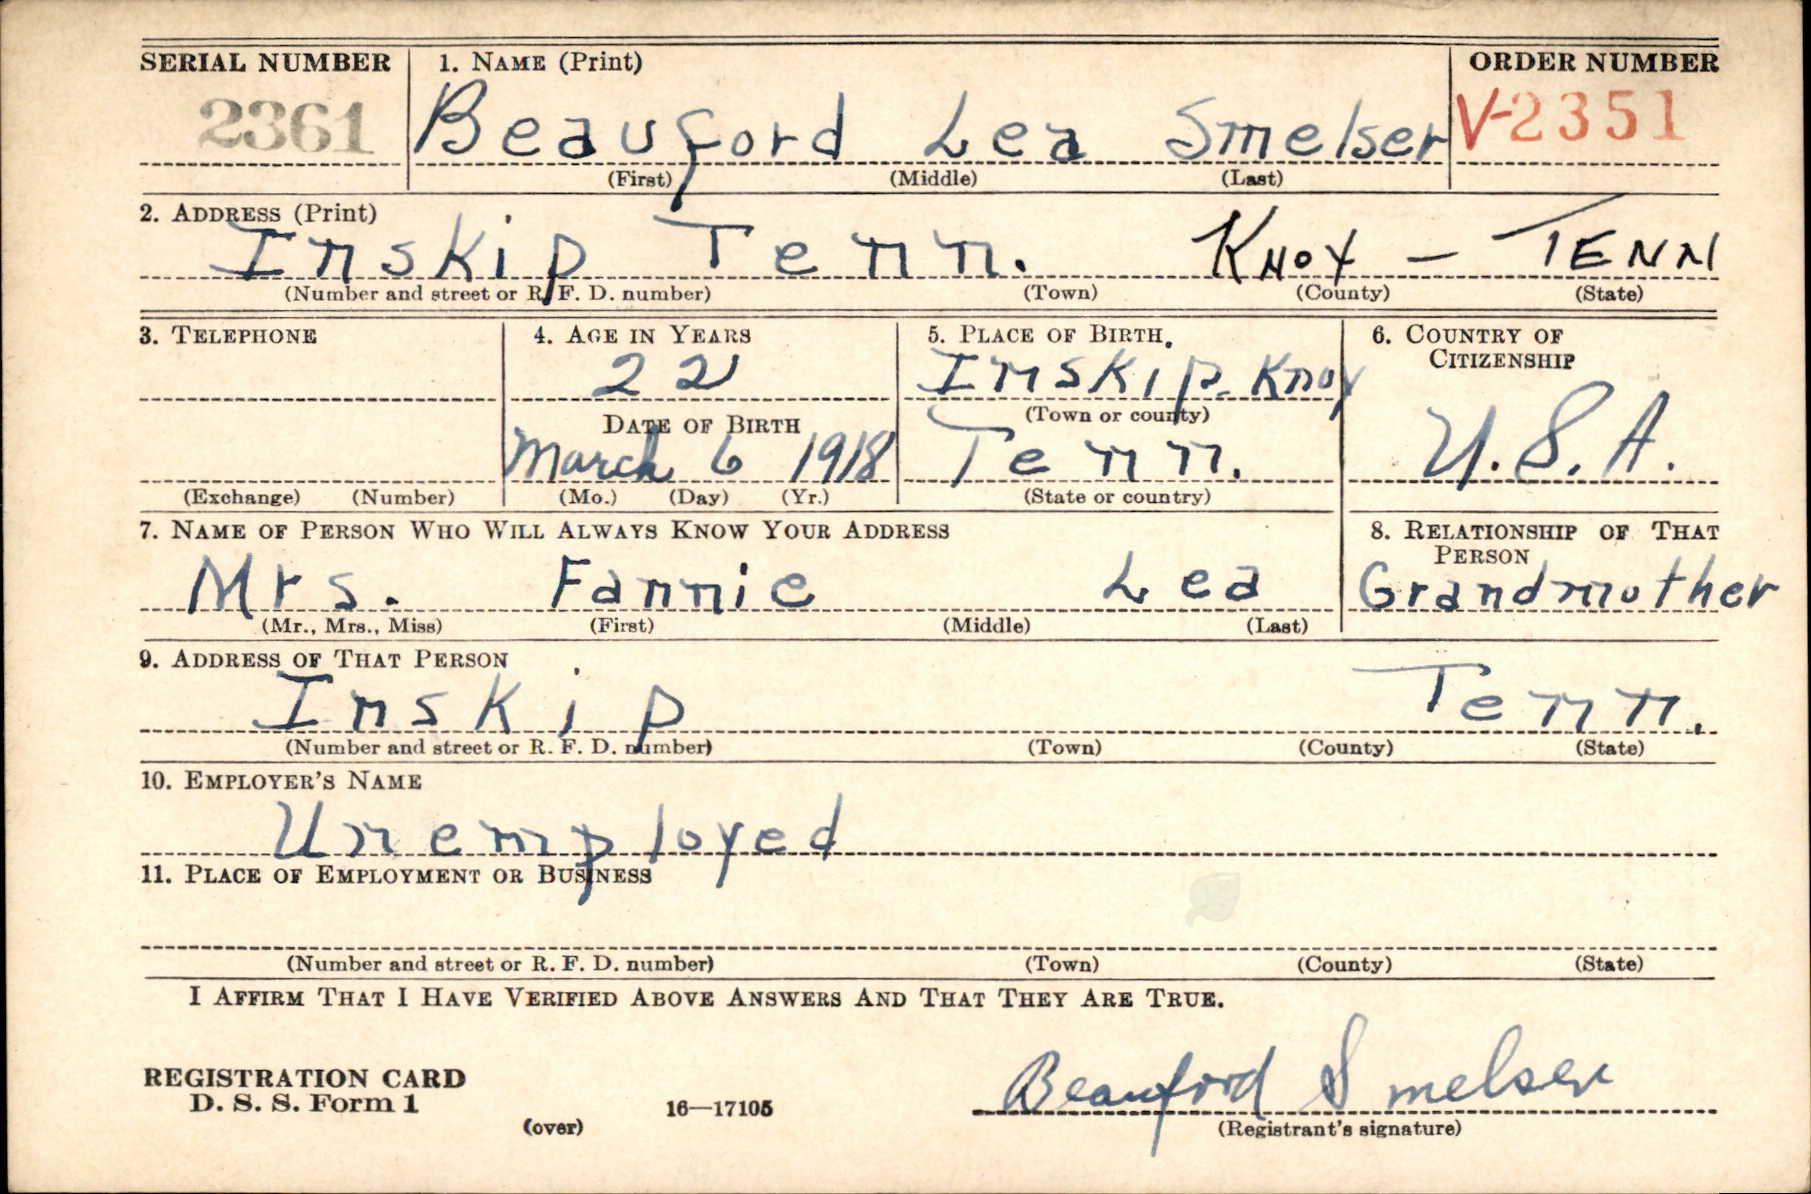 SERIAL NUMBER 1. NAME (Print) ORDER NUMBER
2361 Beauford Lea Smelser V-2351
(First) (Middle) (Last)
2. ADDRESS (Print)
Inskip Tenn. KNOX - TENN
(Number and street or R. F. D. number) (Town) (County) (State)
3. TELEPHONE 4. AGE IN YEARS 5. PLACE OF BIRTH 6. COUNTRY OF CITIZENSHIP
22 Inskip. Knox
DATE OF BIRTH (Town or county) U.S.A.
March 6 1918 Tenn.
(Exchange) (Number) (Mo.) (Day) (Yr.) (State or country)
7. NAME OF PERSON WHO WILL ALWAYS KNOW YOUR ADDRESS 8. RELATIONSHIP OF THAT PERSON
Mrs. Fannie Lea Grandmother
(Mr., Mrs., Miss) (First) (Middle) (Last)
9. ADDRESS OF THAT PERSON
Inskip Tenn.
(Number and street or R. F. D. number) (Town) (County) (State)
10. EMPLOYER'S NAME
Unemployed
11. PLACE OF EMPLOYMENT OR BUSINESS
(Number and street or R. F. D. number) (Town) (County) (State)
I AFFIRM THAT I HAVE VERIFIED ABOVE ANSWERS AND THAT THEY ARE TRUE.
REGISTRATION CARD
D. S. S. Form 1 Beauford Smelser
(over) 16—17105 (Registrant's signature)